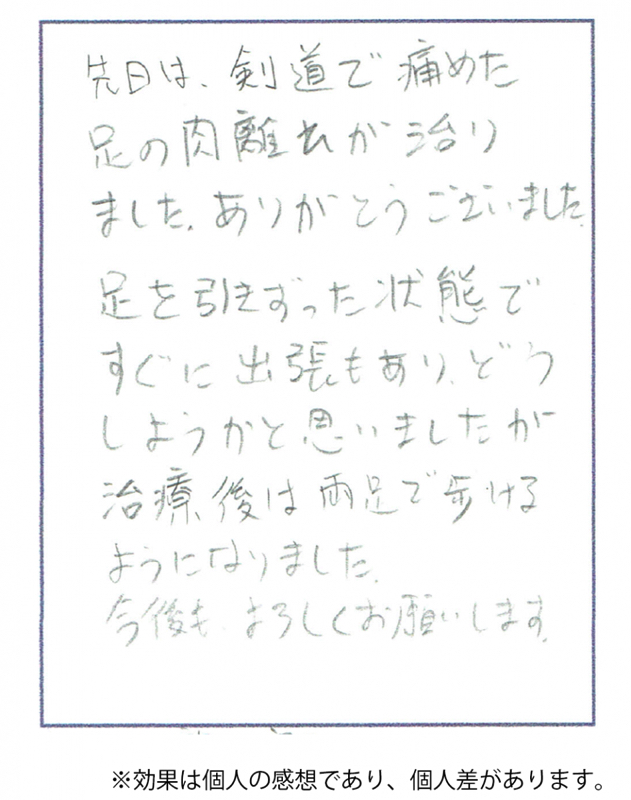 先日は、剣道で痛めた
足の肉離れが治り
ました。ありがとうございました。
足を引きずった状態で
すぐに出張もあり、どう
しようかと思いましたが
治療後は両足で歩ける
ようになりました。
今後も、よろしくお願いします。
※効果は個人の感想であり、個人差があります。